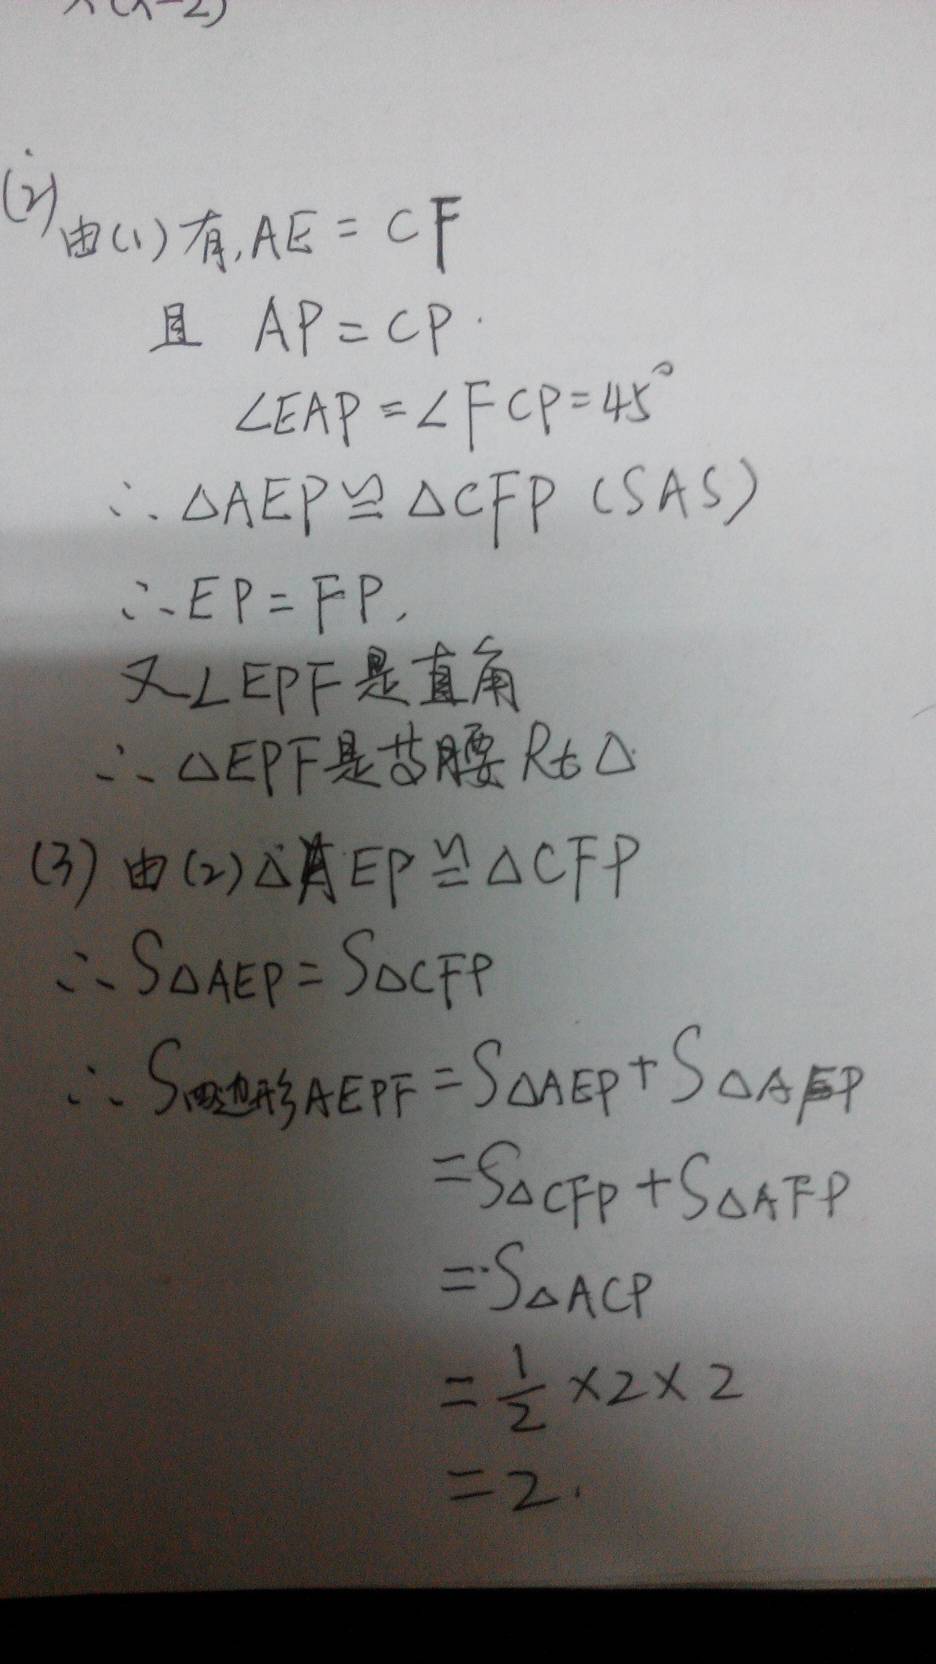 x(x-2)
(2)
由(1)有,AE=CF
且 AP=CP.
∠EAP=∠FCP=45°
∴△AEP≌△CFP(SAS)
∴EP=FP,
又∠EPF是直角
∴△EPF是等腰Rt△
(3)由(2)△AEP≌△CFP
∴S△AEP=S△CFP
∴S四边形AEPF=S△AEP+S△AFP
=S△CFP+S△AFP
=S△ACP
=1/2×2×2
=2.